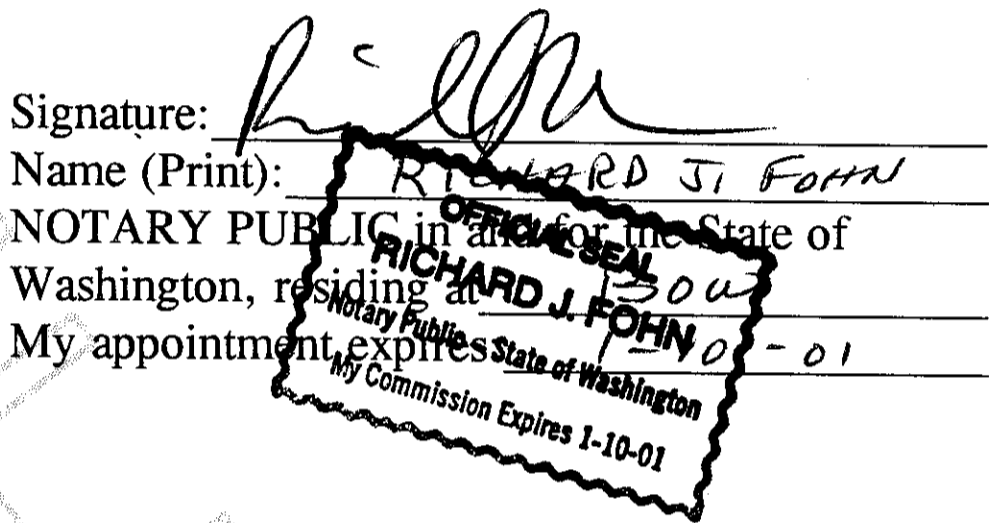 Signature:
Name (Print): RICHARD J. FOHN
NOTARY PUBLIC in and for the State of
Washington, residing at BOW
My appointment expires 1-10-01
OFFICIAL SEAL
RICHARD J. FOHN
Notary Public - State of Washington
My Commission Expires 1-10-01